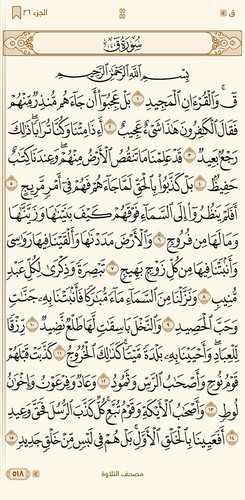 ق الجزء ٢٦
سُورَةُ قٓ
بِسْمِ ٱللَّهِ ٱلرَّحْمَٰنِ ٱلرَّحِيمِ
قٓ ۚ وَٱلْقُرْءَانِ ٱلْمَجِيدِ ١ بَلْ عَجِبُوٓا۟ أَن جَآءَهُم مُّنذِرٌ مِّنْهُمْ
فَقَالَ ٱلْكَٰفِرُونَ هَٰذَا شَىْءٌ عَجِيبٌ ٢ أَءِذَا مِتْنَا وَكُنَّا تُرَابًا ۖ ذَٰلِكَ
رَجْعٌۢ بَعِيدٌ ٣ قَدْ عَلِمْنَا مَا تَنقُصُ ٱلْأَرْضُ مِنْهُمْ ۖ وَعِندَنَا كِتَٰبٌ
حَفِيظٌۢ ٤ بَلْ كَذَّبُوا۟ بِٱلْحَقِّ لَمَّا جَآءَهُمْ فَهُمْ فِىٓ أَمْرٍ مَّرِيجٍ ٥
أَفَلَمْ يَنظُرُوٓا۟ إِلَى ٱلسَّمَآءِ فَوْقَهُمْ كَيْفَ بَنَيْنَٰهَا وَزَيَّنَّٰهَا
وَمَا لَهَا مِن فُرُوجٍ ٦ وَٱلْأَرْضَ مَدَدْنَٰهَا وَأَلْقَيْنَا فِيهَا رَوَٰسِىَ
وَأَنۢبَتْنَا فِيهَا مِن كُلِّ زَوْجٍۭ بَهِيجٍ ٧ تَبْصِرَةً وَذِكْرَىٰ لِكُلِّ عَبْدٍ
مُّنِيبٍ ٨ وَنَزَّلْنَا مِنَ ٱلسَّمَآءِ مَآءً مُّبَٰرَكًا فَأَنۢبَتْنَا بِهِۦ جَنَّٰتٍ
وَحَبَّ ٱلْحَصِيدِ ٩ وَٱلنَّخْلَ بَاسِقَٰتٍ لَّهَا طَلْعٌ نَّضِيدٌ ١٠ رِّزْقًا
لِّلْعِبَادِ ۖ وَأَحْيَيْنَا بِهِۦ بَلْدَةً مَّيْتًا ۚ كَذَٰلِكَ ٱلْخُرُوجُ ١١ كَذَّبَتْ قَبْلَهُمْ
قَوْمُ نُوحٍ وَأَصْحَٰبُ ٱلرَّسِّ وَثَمُودُ ١٢ وَعَادٌ وَفِرْعَوْنُ وَإِخْوَٰنُ
لُوطٍ ١٣ وَأَصْحَٰبُ ٱلْأَيْكَةِ وَقَوْمُ تُبَّعٍ ۚ كُلٌّ كَذَّبَ ٱلرُّسُلَ فَحَقَّ وَعِيدِ
١٤ أَفَعَيِينَا بِٱلْخَلْقِ ٱلْأَوَّلِ ۚ بَلْ هُمْ فِى لَبْسٍ مِّنْ خَلْقٍ جَدِيدٍ ١٥
مصحف التلاوة ٥١٨